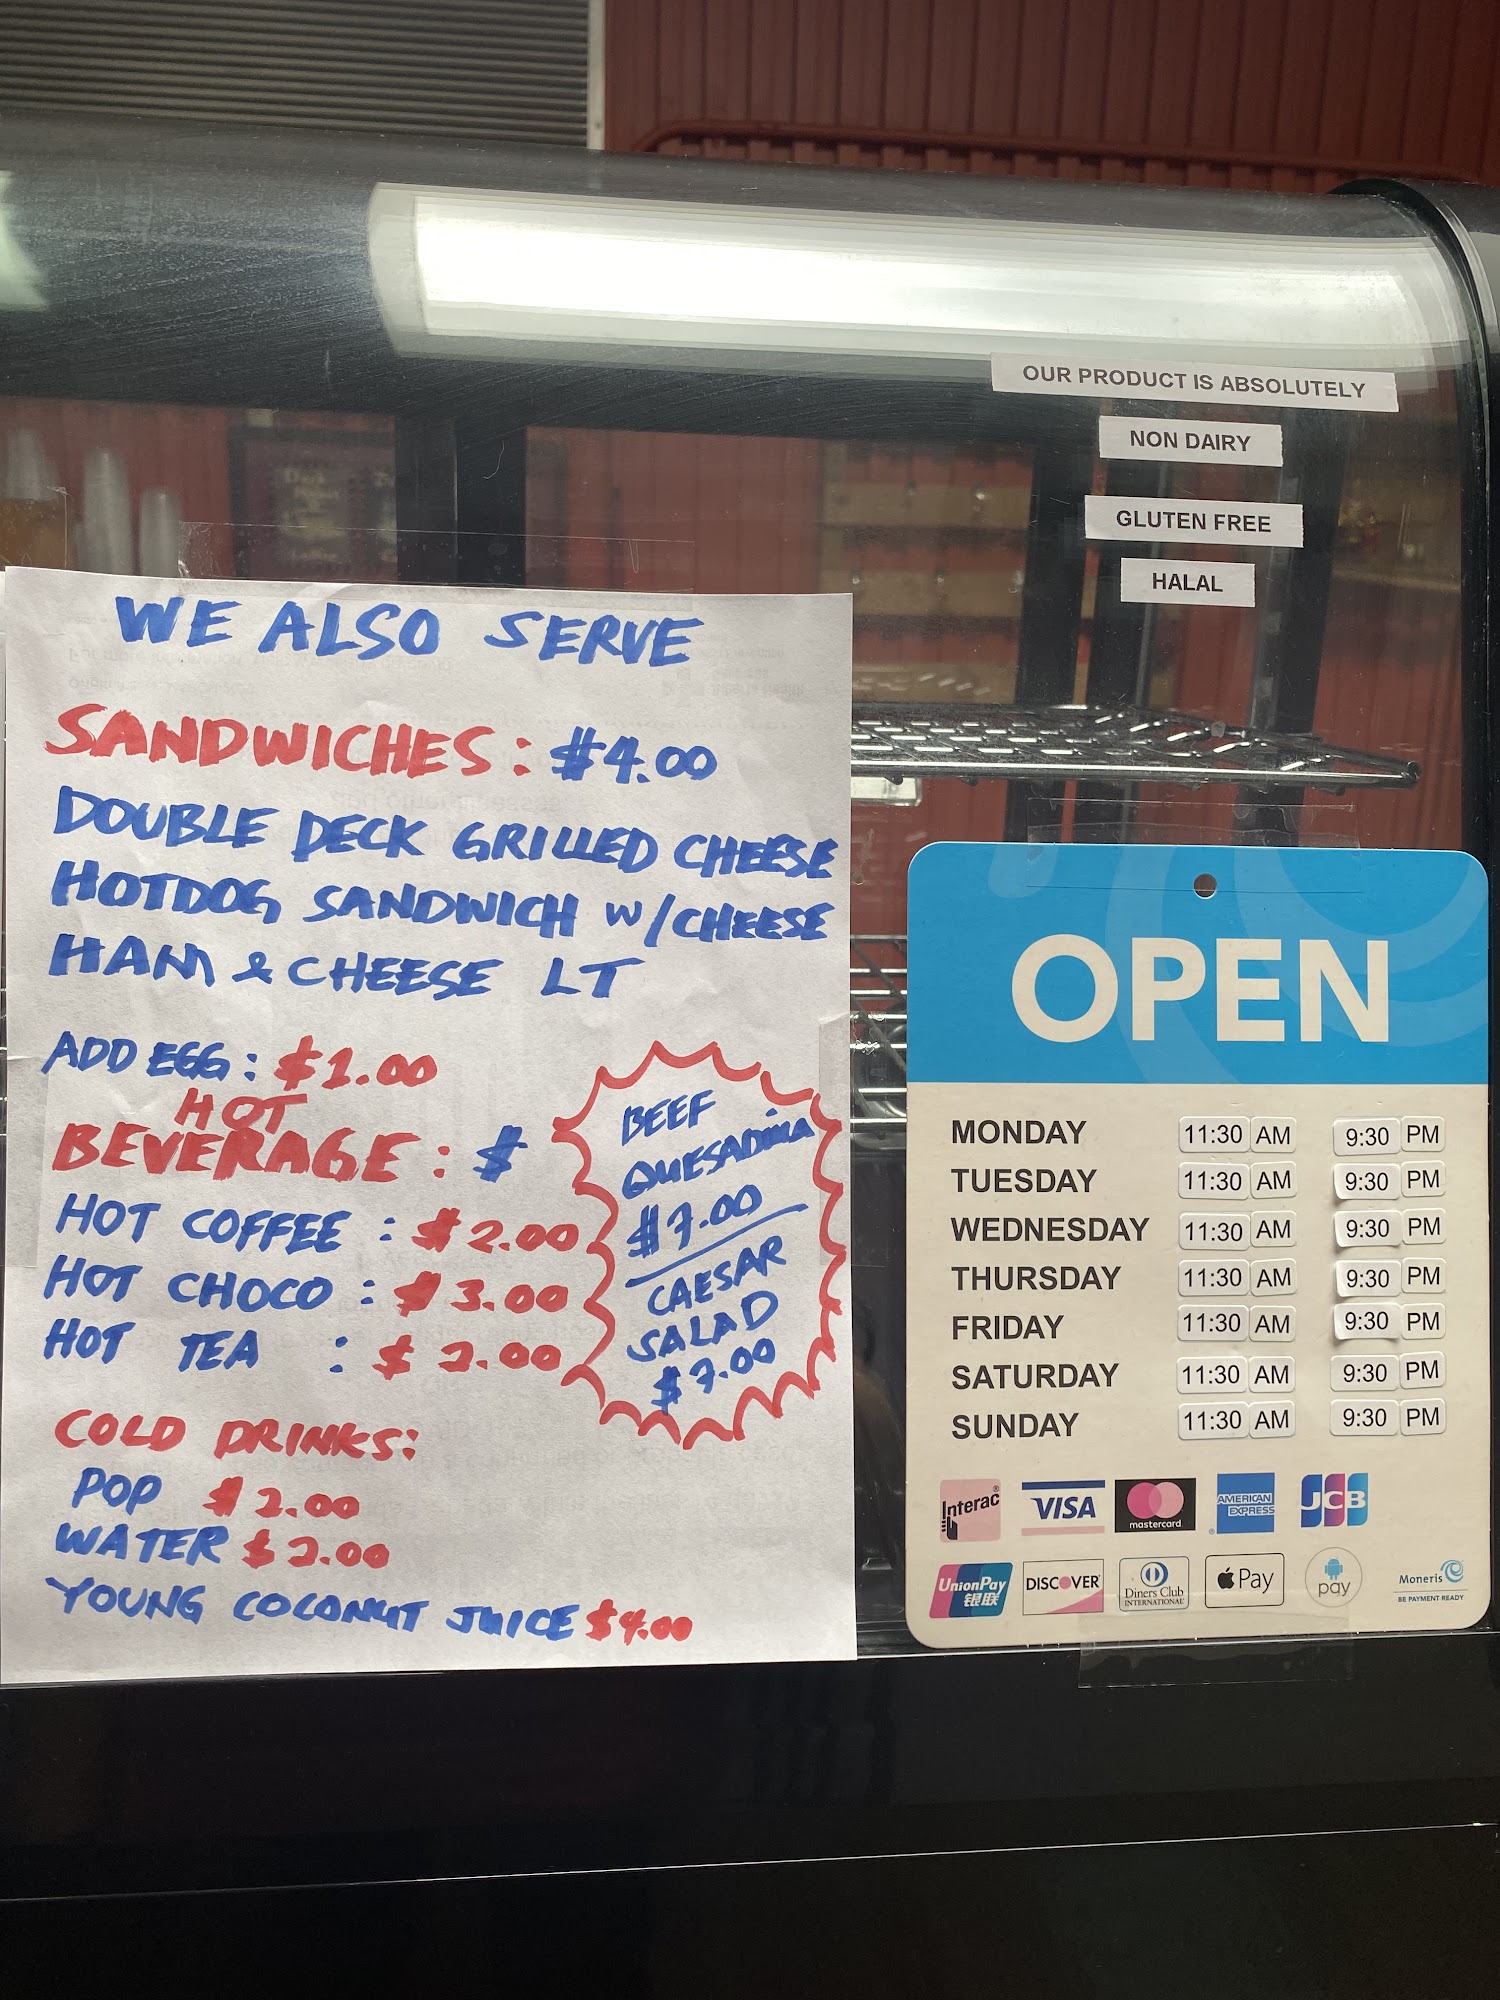 OUR PRODUCT IS ABSOLUTELY
NON DAIRY
GLUTEN FREE
HALAL
WE ALSO SERVE
SANDWICHES: $4.00
DOUBLE DECK GRILLED CHEESE
HOTDOG SANDWICH W/CHEESE
HAM & CHEESE LT
ADD EGG: $1.00
HOT
BEVERAGE: $
HOT COFFEE : $2.00
HOT CHOCO : $3.00
HOT TEA : $2.00
BEEF
QUESADillA
$7.00
CAESAR
SALAD
$7.00
COLD DRINKS:
POP $2.00
WATER $2.00
YOUNG COCONUT JUICE $4.00
OPEN
MONDAY 11:30 AM 9:30 PM
TUESDAY 11:30 AM 9:30 PM
WEDNESDAY 11:30 AM 9:30 PM
THURSDAY 11:30 AM 9:30 PM
FRIDAY 11:30 AM 9:30 PM
SATURDAY 11:30 AM 9:30 PM
SUNDAY 11:30 AM 9:30 PM
Interac® VISA mastercard AMERICAN EXPRESS JCB
UnionPay 银联 DISCOVER Diners Club INTERNATIONAL Pay pay Moneris
BE PAYMENT READY